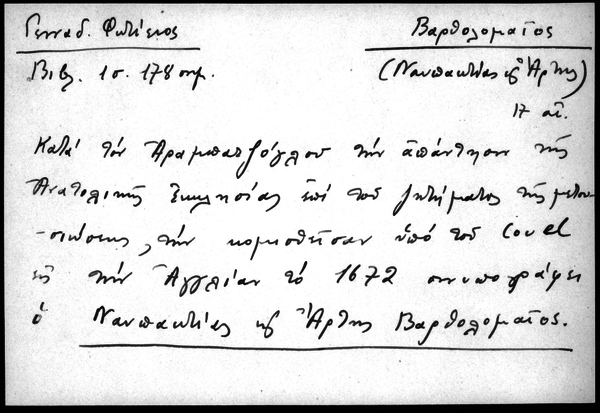 Γενναδ. Φωτίειος Βαρθολομαῖος
Βιβλ. 1 σ. 178 σημ. (Ναυπακτίας & Ἄρτης)
17 αἰ.
Κατά τόν Ἀραμπατζόγλου τήν ἀπάντησιν τῆς
Ἀνατολικῆς Ἐκκλησίας ἐπί τοῦ ζητήματος τῆς μετου-
-σιώσεως, τήν κομισθεῖσαν ὑπό τοῦ Covel
εἰς τήν Ἀγγλίαν τό 1672 συνυπογράφει
ὁ Ναυπακτίας & Ἄρτης Βαρθολομαῖος.